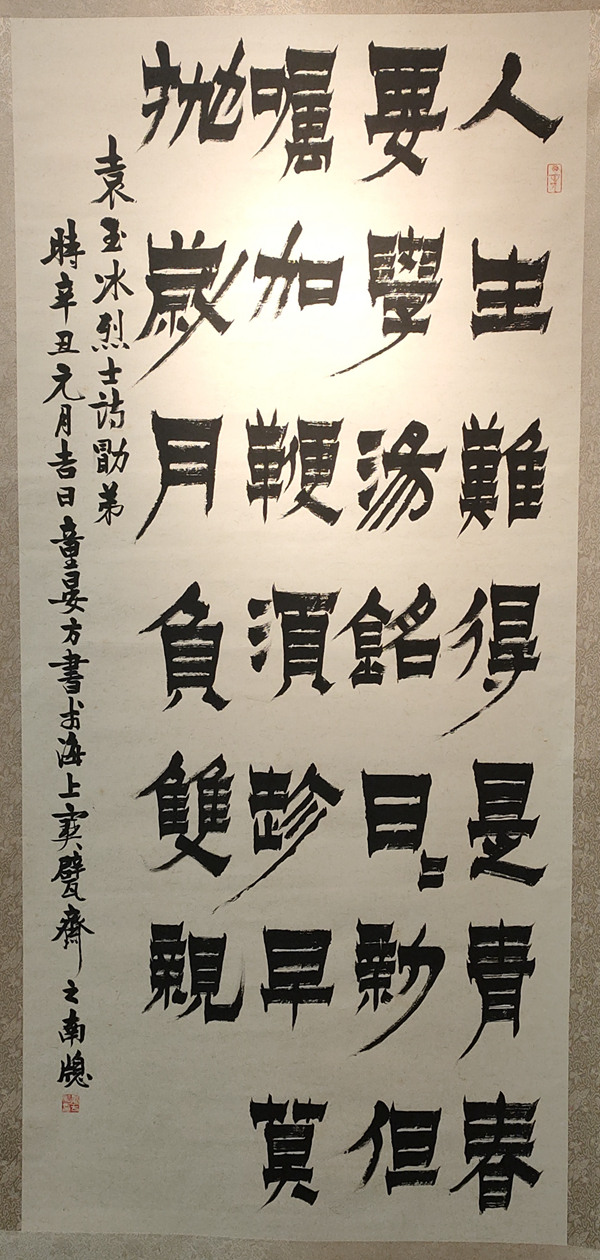 人生難得是青春
要學湯銘日〻新但
囑加鞭須趁早莫
拋歲月負雙親
袁玉冰烈士詩勖弟
時辛丑元月吉日童晏方書于海上寶甓齋之南牕